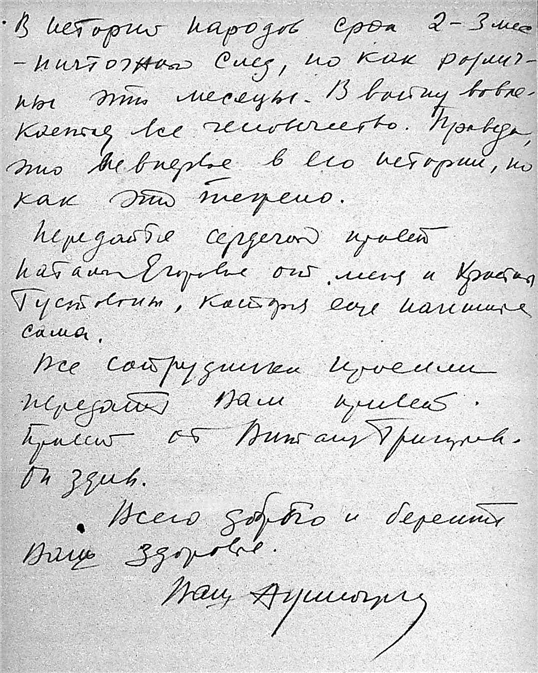 В истории народов срок 2-3 мес
- ничтожный след, но как различ-
ны эти месяцы. В войну вовле-
кается все человечество. Правда,
это не впервые в его истории, но
как это тяжело.
Передайте сердечный привет
Наталии Егоровне от меня и
которая еще напишет
сама.
Все сотрудники просили
передать Вам привет.
Привет от
Он здоров.
Всего доброго и берегите
Ваше здоровье.
Ваш